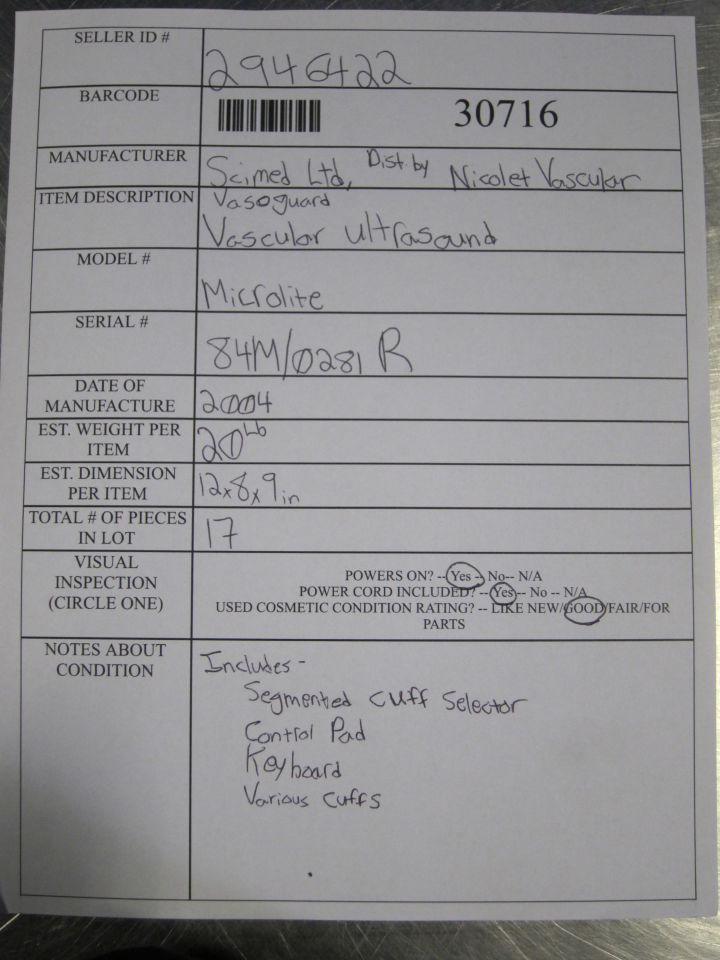 SELLER ID #
2946422
BARCODE
30716
MANUFACTURER
Scimed Ltd, Dist by Nicolet Vascular
ITEM DESCRIPTION
Vasoguard
Vascular ultrasound
MODEL #
Microlite
SERIAL #
84M/0281 R
DATE OF
MANUFACTURE
2004
EST. WEIGHT PER
ITEM
20 Lb
EST. DIMENSION
PER ITEM
12x8x9in
TOTAL # OF PIECES
IN LOT
17
VISUAL
INSPECTION
(CIRCLE ONE)
POWERS ON? -- Yes -- No-- N/A
POWER CORD INCLUDED? -- Yes -- No -- N/A
USED COSMETIC CONDITION RATING? -- LIKE NEW/GOOD/FAIR/FOR
PARTS
NOTES ABOUT
CONDITION
Includes -
Segmented cuff selector
Control Pad
Keyboard
Various cuffs